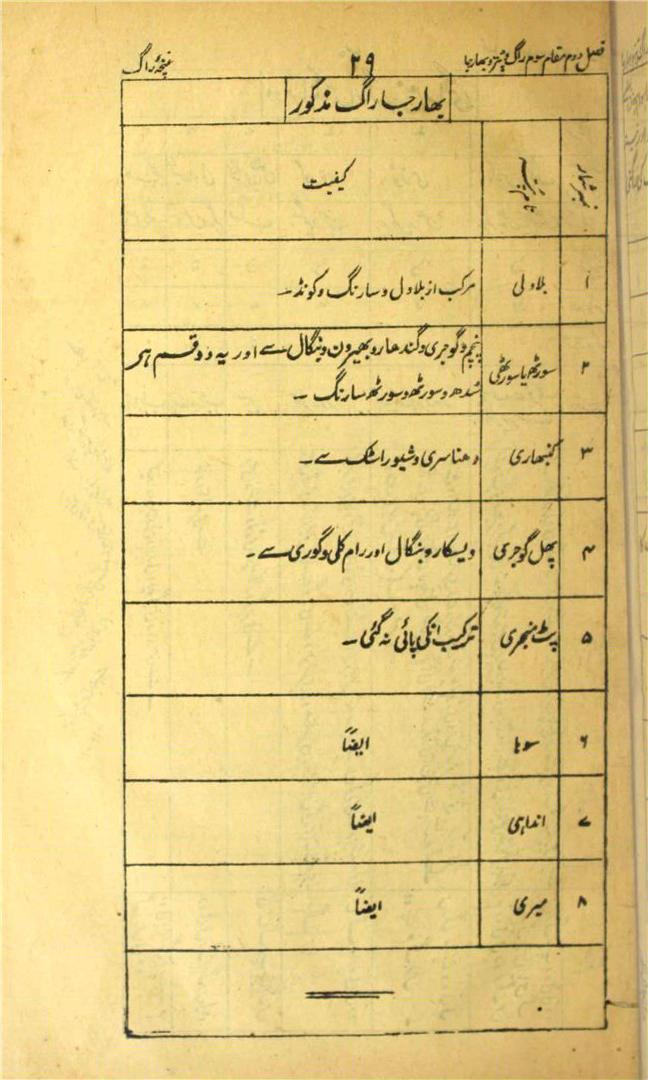 فصل دوم مقام سوم راگ و پتر و بھارجا ۲۹ غنچۂ راگ
بھارجا راگ مذکور
نمبر شمار نام کیفیت
۱ بلاولی مرکب از بلاول و سارنگ و کونڈ۔
۲ سورٹھ یا سورٹھی پنچم و گوجری و گندھار و بھیرون و بنگال سے اور یہ دو قسم ہے
سُدھ و سورٹھ و سورٹھ سارنگ ۔
۳ کنبھاری دھناسری و شیوراشٹک سے ۔
۴ پھل گوجری دیسکار و بنگال اور رام کلی و گوری سے ۔
۵ پٹ منجری ترکیب انکی پائی نہ گئی ۔
۶ سوہا ایضاً
۷ انداہی ایضاً
۸ میری ایضاً